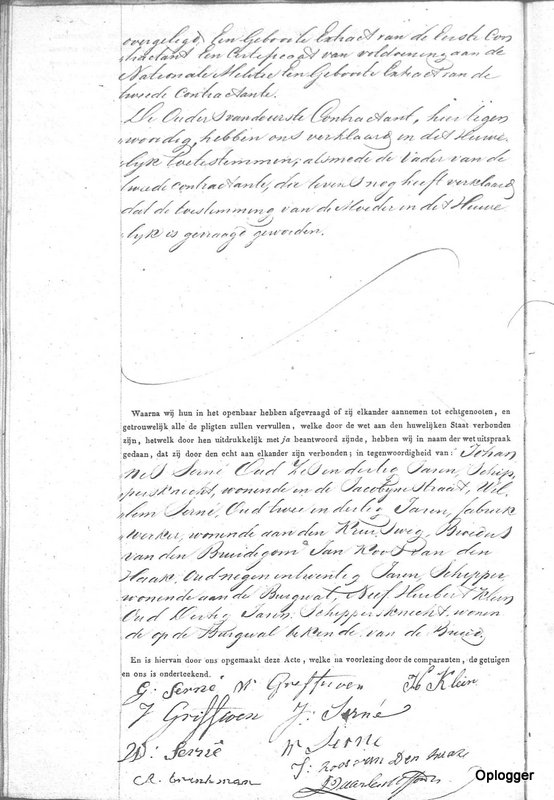 overgelegd, Een Geboorte Extract van de Eerste Con
tractant Een Certificaat van voldoening aan de
Nationale Militie Een Geboorte Extract van de
tweede Contractante.
De Ouders van de eerste Contractant, hier tegen
woordig, hebben ons verklaard in dit Huwe
lyk toetestemmen, alsmede de Vader van de
tweede contractante, die tevens nog heeft verklaard
dat de toestemming van de Moeder in dit Huwe
lyk is gevraagd geworden.
Waarna wij hun in het openbaar hebben afgevraagd of zij elkander aannemen tot echtgenooten, en
getrouwelijk alle de pligten zullen vervullen, welke door de wet aan den huwelijken Staat verbonden
zijn, hetwelk door hen uitdrukkelijk met ja beantwoord zijnde, hebben wij in naam der wet uitspraak
gedaan, dat zij door den echt aan elkander zijn verbonden; in tegenwoordigheid van: Johan
nes Serné Oud Zes en dertig Jaren, Schip
persknecht, wonende in de Jacobyne Straat, Wil
lem Serné, Oud twee en dertig Jaren, fabriek
werker, wonende aan den Kruisweg, Broeders
van den Bruidegom Jan Koos van den
Haake, Oud negen en twentig Jaren, Schipper
wonende aan de Burgwal, Neef Huibert Klein
Oud Dertig Jaren Schippersknecht, wonen
de op de Burgwal bekende van de Bruid
En is hiervan door ons opgemaakt deze Acte, welke na voorlezing door de comparanten, de getuigen
en ons is onderteekend.
G. Serné W Griffioen H Klein
J Griffioen J. Serné
W: Serné W Serne
J: Koos van Den Haake
Brinkman
Oplogger